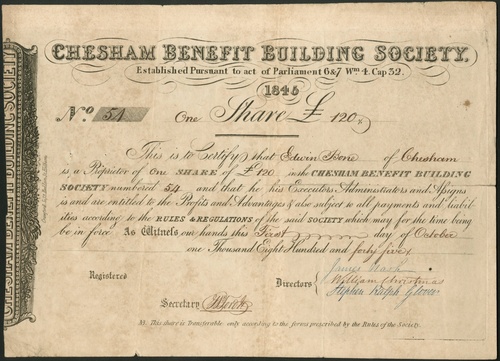 CHESHAM BENEFIT BUILDING SOCIETY,
Established Pursuant to act of Parliament 6&7 Wm 4. Cap 32.
1845
No. 54 One Share £ 120
This is to Certify that Edwin Bone of Chesham
is a Proprietor of One SHARE of £ 120 in the CHESHAM BENEFIT BUILDING
SOCIETY numbered 54 and that he his Executors Administrators and Assigns
is and are entitled to the Profits and Advantages & also subject to all payments and liabil-
ities according to the RULES & REGULATIONS of the said SOCIETY which may for the time being
be in force. As Witness our hands this First day of October
one Thousand Eight Hundred and forty five
Registered
Directors
James
William
Stephen Ralph Glover
Secretary
NB. This share is Transferable only according to the forms prescribed by the Rules of the Society.
CHESHAM BENEFIT BUILDING SOCIETY